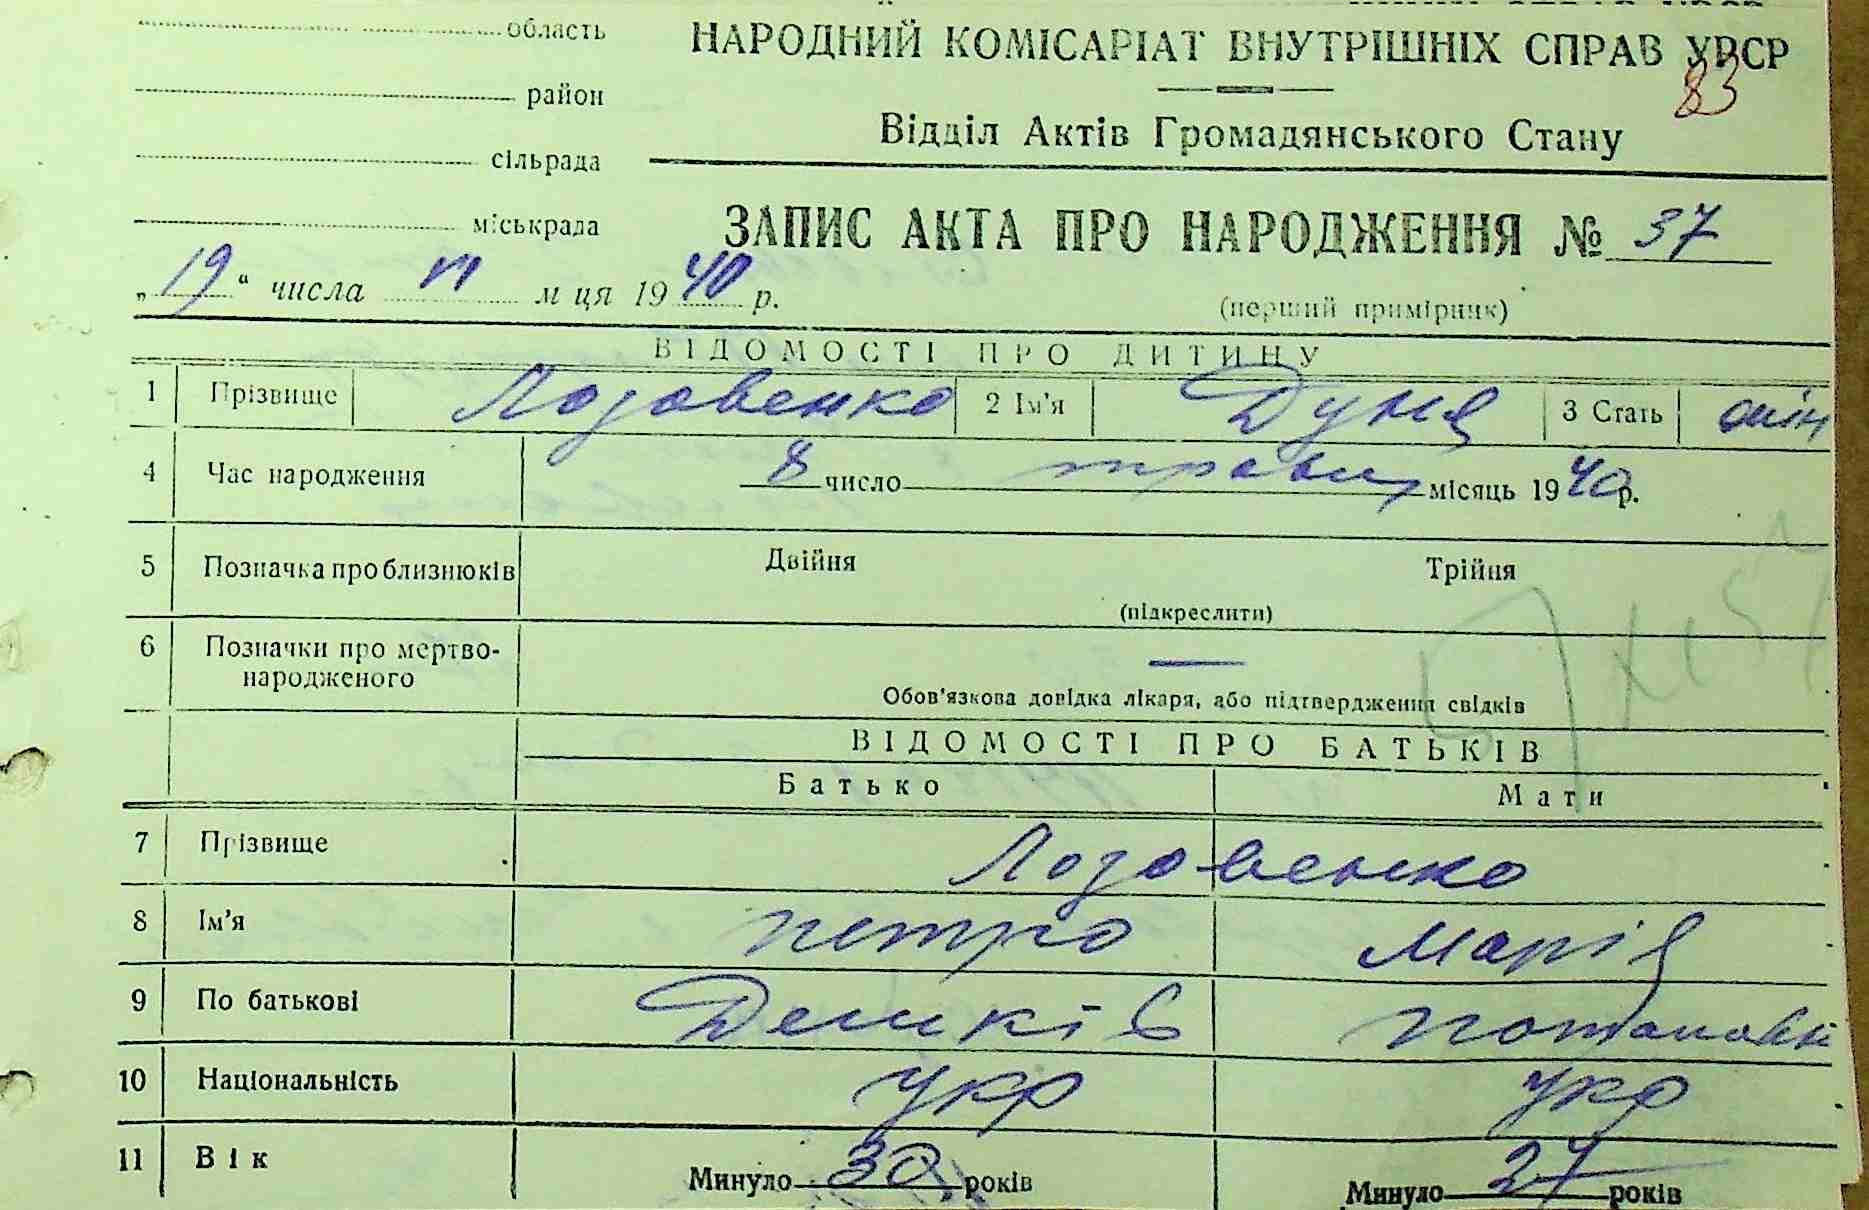 область
район
сільрада
міськрада
НАРОДНИЙ КОМІСАРІАТ ВНУТРІШНІХ СПРАВ УРСР
83
Відділ Актів Громадянського Стану
ЗАПИС АКТА ПРО НАРОДЖЕННЯ № 37
„19“ числа VI м ця 1940 р.
(перший примірник)
ВІДОМОСТІ ПРО ДИТИНУ
1 Прізвище Лозовенко 2 Ім'я Дуня 3 Стать жін
4 Час народження 8 число травня місяць 1940р.
5 Позначка про близнюків Двійня Трійня
(підкреслити)
6 Позначки про мертво-
народженого
Обов'язкова довідка лікаря, або підтвердження свідків
ВІДОМОСТІ ПРО БАТЬКІВ
Батько Мати
7 Прізвище Лозовенко
8 Ім'я петро Марія
9 По батькові
10 Національність укр укр
11 Вік Минуло 30 років Минуло 27 років